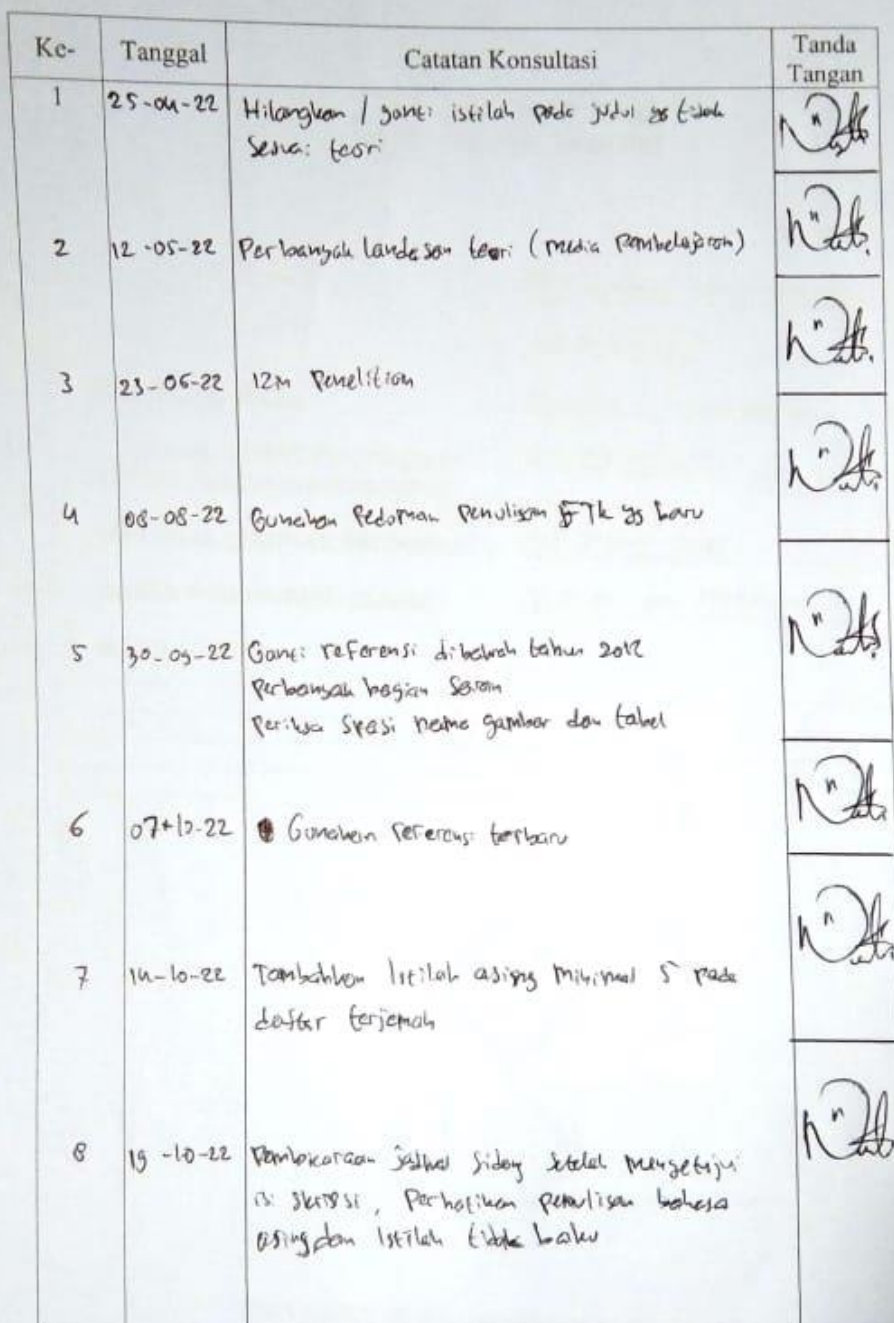 Ke- Tanggal Catatan Konsultasi Tanda Tangan
1 25-04-22 Hilangkan / ganti istilah pada judul yg tidak
sesuai teori
2 12-05-22 Perbanyak landasan teori (media pembelajaran)
3 23-06-22 IZIN Penelitian
4 08-08-22 Gunakan Pedoman Penulisan FTK yg baru
5 30-09-22 Ganti referensi dibawah tahun 2012
Perbanyak bagian Saran
Periksa Spasi nama gambar dan tabel
6 07-10-22 Gunakan referensi terbaru
7 14-10-22 Tambahkan Istilah asing minimal 5 pada
daftar terjemah
8 19-10-22 Pembicaraan jadwal Sidang setelah menyetujui
isi skripsi, Perhatikan penulisan bahasa
asing dan Istilah tidak baku